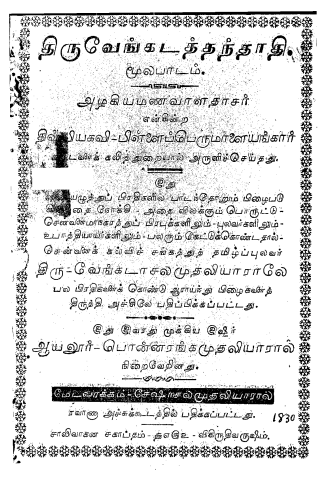 திருவேங்கடத்தந்தாதி.
மூலபாடம்.
அழகியமணவாளதாசர்
என்கின்ற
திவ்வியகவி-பிள்ளைப்பெருமாளையங்கார்
கலித்துறையால் அருளிச்செய்தது.
இது
பிரதிகளில் பாடந்தோறும் பிழைபடு
நோக்கி - அதை விலக்கும் பொருட்டு -
சென்னமாகாத்துப் பிரபுக்களிலும் - புலவர்களிலும் -
உபாத்தியாயர்களிலும் - பலரும் கேட்டுக்கொண்டதால் -
சென்னைக் கல்விச் சங்கத்துத் தமிழ்ப்புலவர்
திரு-வேங்கடாசலமுதலியாராலே
பல பிரதிகளைக் கொண்டு ஆராய்ந்து பிழைகளைத்
திருத்தி, அச்சிலே பதிப்பிக்கப்பட்டது.
இது இயாது முக்கிய இஷர்
ஆயலூர்-பொன்னரங்கமுதலியாரால்
நிறைவேறினது.
மேட்டுவாக்கம்-சேஷாசலமுதலியாரால்
அச்சுக்கூடத்தில் பதிக்கப்பட்டது.
1830
சாலிவாகன சகாப்தம் - ௲௭௱௫௨ - விகிருதிவருஷம்.